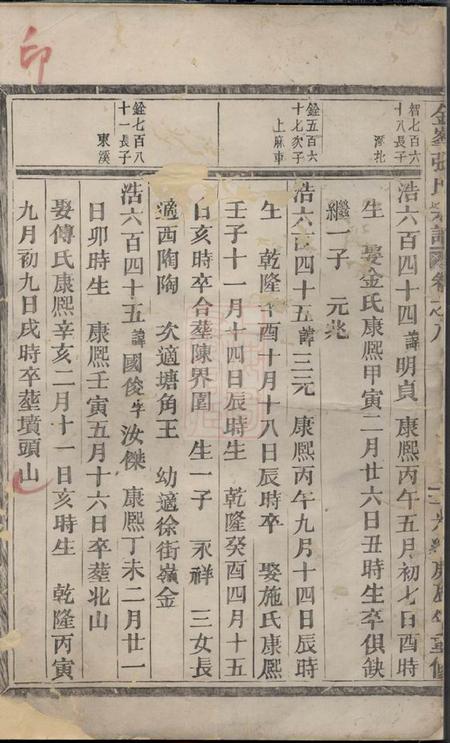 金峯張氏宗譜 卷之八
智七百六十八長子 溪北
浩六百四十四 諱明貞 康熙丙午五月初七日酉時
生 娶金氏康熙甲寅二月廿六日丑時生卒俱缺
繼一子 元兆
銓五百六十七次子 上麻車
浩六百四十五 諱三元 康熙丙午九月十四日辰時
生 乾隆酉十月十八日辰時卒 娶施氏康熙
壬子十一月十四日辰時生 乾隆癸酉四月十五
日亥時卒合塟陳界園 生一子 永祥 三女長
適西陶陶 次適塘角王 幼適徐街嶺金
銓七百八十一長子 東溪
浩六百四十五 諱國俊字汝傑 康熙丁未二月廿一
日卯時生 康熙壬寅五月十六日卒塟北山
娶傅氏康熙辛亥二月十一日亥時生 乾隆丙寅
九月初九日戌時卒塟墳頭山
印